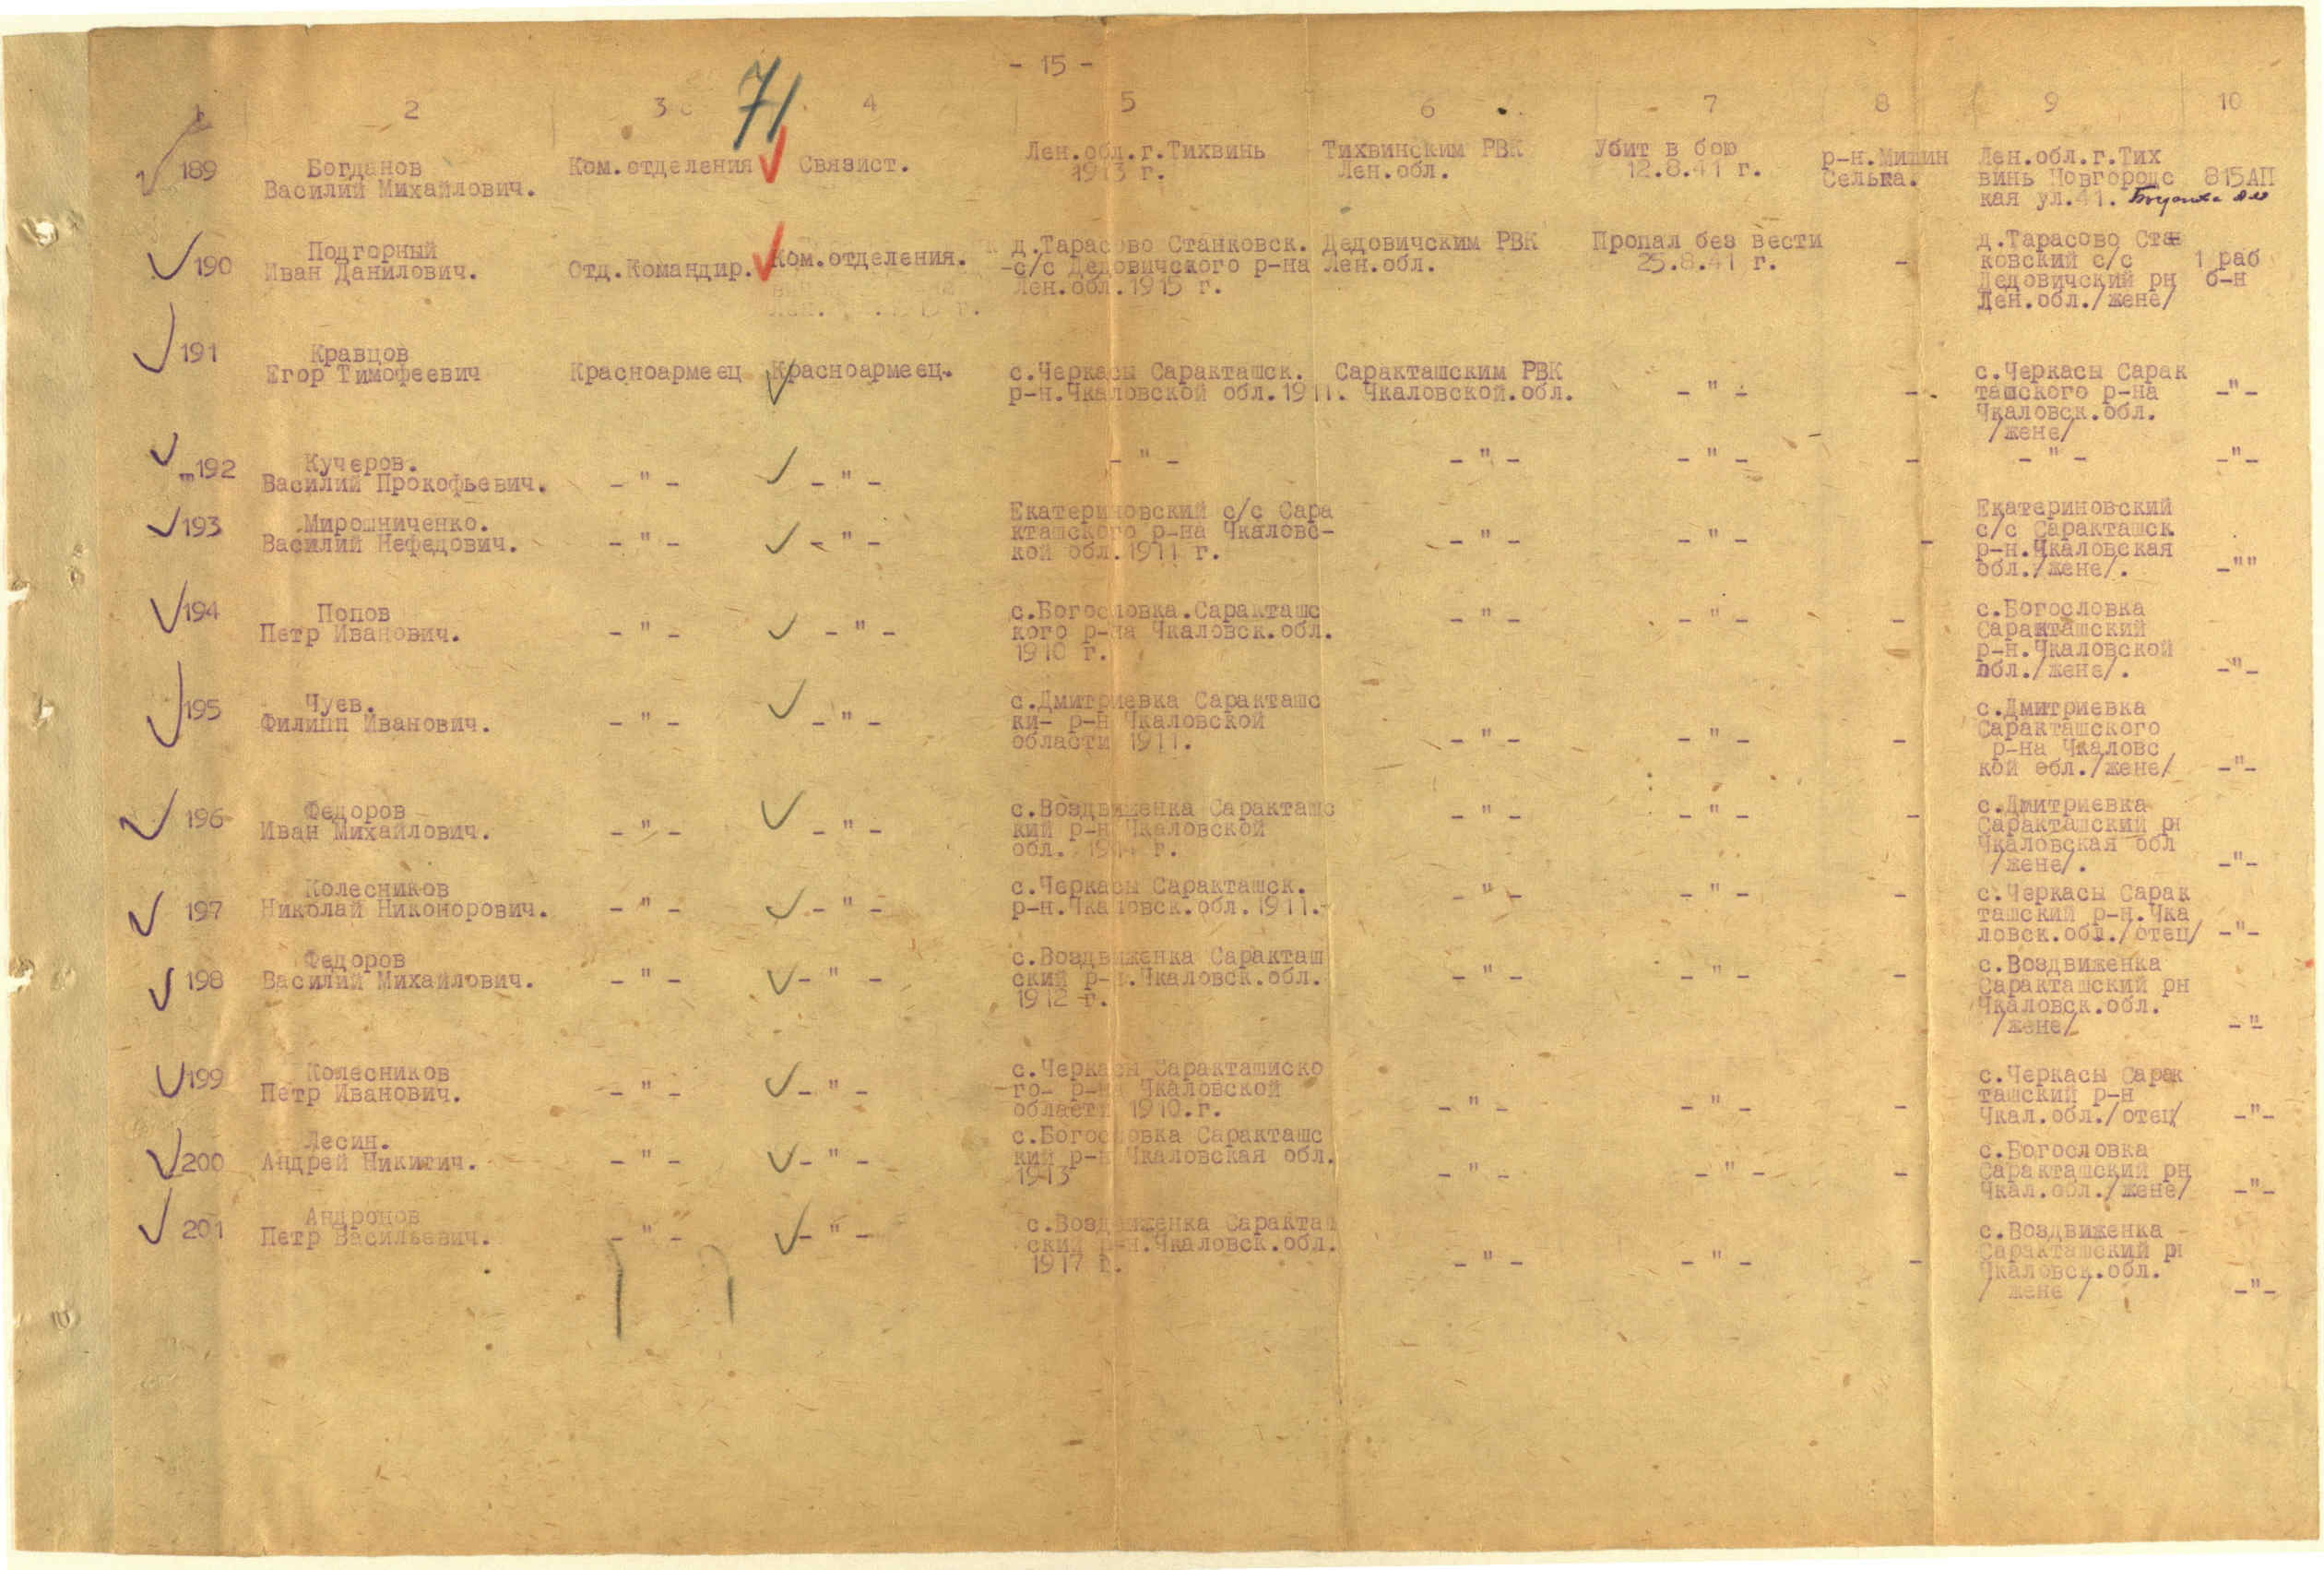 - 15 -
71
1 2 3 4 5 6 7 8 9 10
189 Богданов Ком.отделения Связист. Лен.обл.г.Тихвинь Тихвинским РВК Убит в бою р-н.Мишин Лен.обл.г.Тих
Василий Михайлович. 1913 г. Лен.обл. 12.8.41 г. Селька. винь Новгородс 815АП
кая ул.41.
190 Подгорный Отд.Командир. Ком.отделения. д.Тарасово Станковск. Дедовичским РВК Пропал без вести - д.Тарасово Стан
Иван Данилович. с/с Дедовичского р-на Лен.обл. 25.8.41 г. ковский с/с 1 раб
Лен.обл.1915 г. Дедовичский рн б-н
Лен.обл./жене/
191 Кравцов Красноармеец Красноармеец. с.Черкасы Саракташск. Саракташским РВК - " - - с.Черкасы Сарак
Егор Тимофеевич р-н.Чкаловской обл.1911. Чкаловской.обл. ташского р-на -"-
Чкаловск.обл.
/жене/
192 Кучеров. - " - - " - - " - - " - - " - - - " - -"-
Василий Прокофьевич.
193 Мирошниченко. - " - - " - Екатериновский с/с Сара - " - - " - - Екатериновский
Василий Нефедович. кташского р-на Чкаловс- с/с Саракташск
кой обл.1911 г. р-н.Чкаловская
обл./жене/. -""
194 Попов - " - - " - с.Богословка.Саракташс - " - - " - - с.Богословка
Петр Иванович. кого р-на Чкаловск.обл. Саракташский
1910 г. р-н.Чкаловской
обл./жене/. -"-
195 Чуев. - " - - " - с.Дмитриевка Саракташс - " - - " - - с.Дмитриевка
Филипп Иванович. ки- р-н Чкаловской Саракташского
области 1911. р-на Чкаловс
кой обл./жене/ -"-
196 Федоров - " - - " - с.Воздвиженка Саракташс - " - - " - - с.Дмитриевка
Иван Михайлович. кий р-н Чкаловской Саракташский рн
обл. г. Чкаловская обл
/жене/. -"-
197 Колесников - " - - " - с.Черкасы Саракташск. - " - - " - - с.Черкасы Сарак
Николай Никонорович. р-н.Чкаловск.обл.1911.- ташский р-н.Чка
ловск.обл./отец/ -"-
198 Федоров - " - - " - с.Воздвиженка Саракташ - " - - " - - с.Воздвиженка
Василий Михайлович. ский р-н.Чкаловск.обл. Саракташский рн
1912 г. Чкаловск.обл.
/жене/ -"
199 Колесников - " - - " - с.Черкасы Саракташиско - " - - " - - с.Черкасы Сарак
Петр Иванович. го- р-на Чкаловской ташский р-н
области 1910.г. Чкал.обл./отец/ -"-
200 Лесин. - " - - " - с.Богословка Саракташс - " - - " - - с.Богословка
Андрей Никитич. кий р-н Чкаловская обл. Саракташский рн
1913 Чкал.обл./жене/ -"-
201 Андронов - " - - " - с.Воздвиженка Саракташ - " - - " - - с.Воздвиженка
Петр Васильевич. ский р-н.Чкаловск.обл. Саракташский рн
1917 г. Чкаловск.обл.
/ жене / -"-